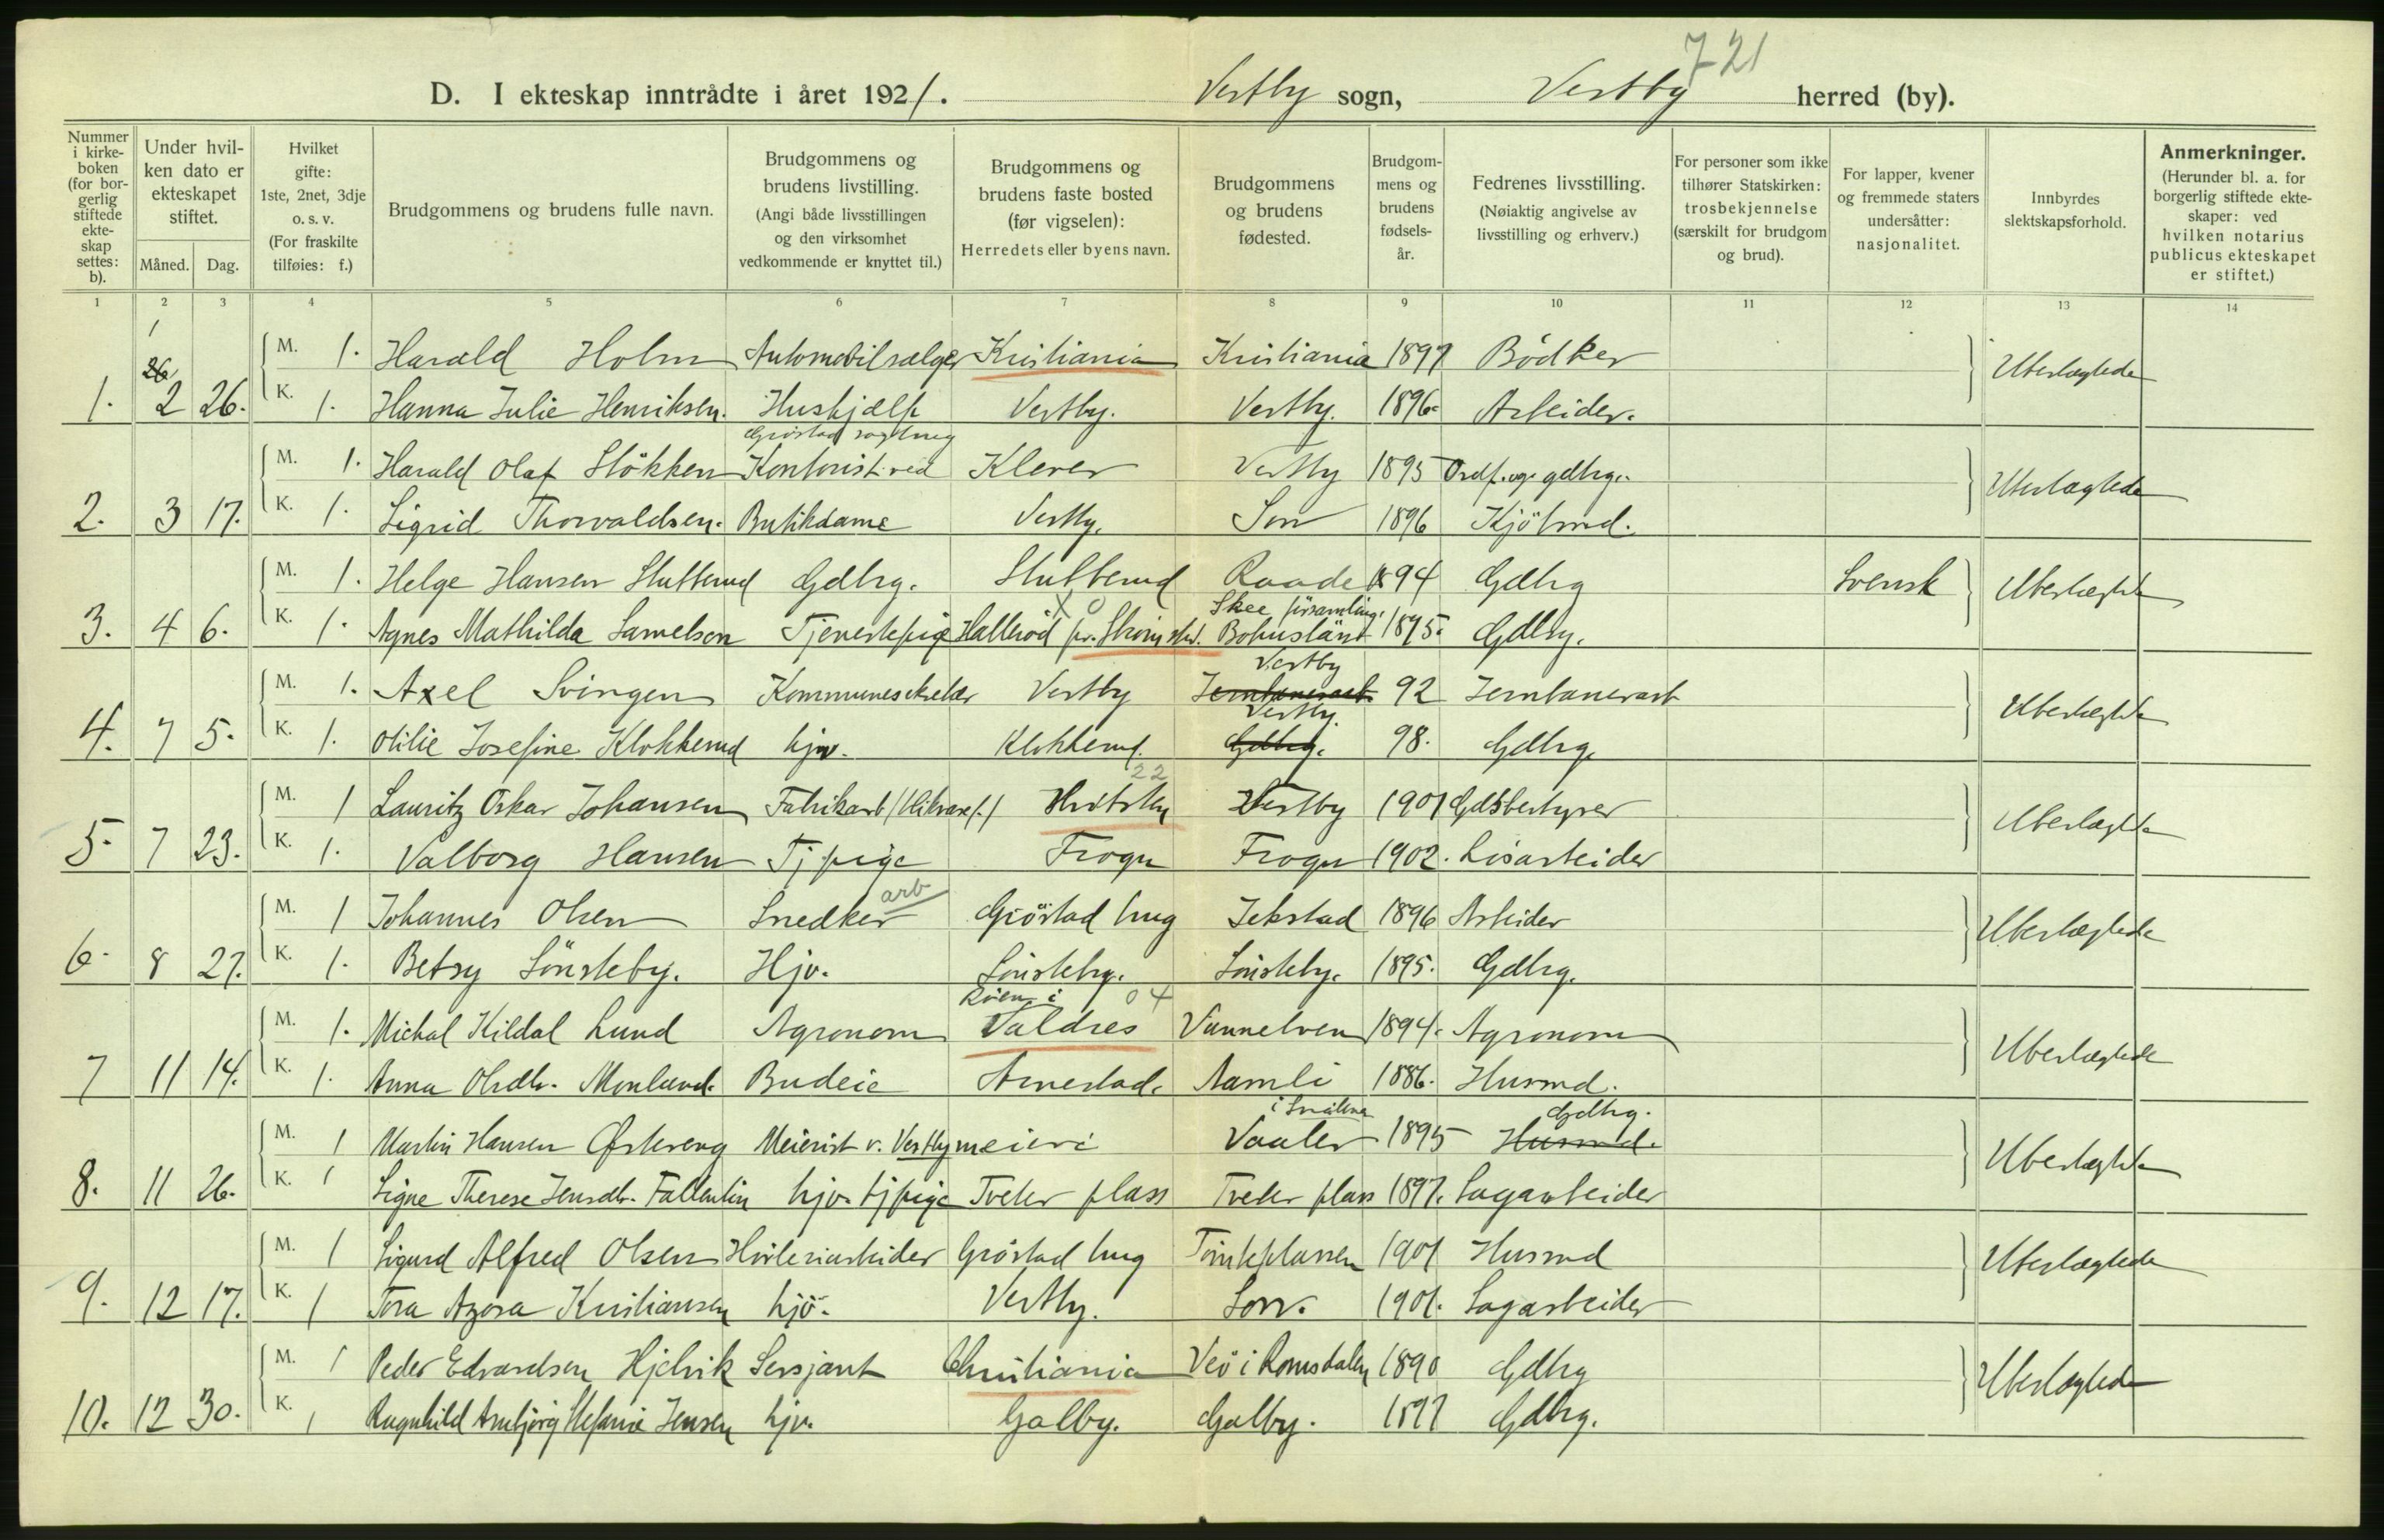 721
D. I ekteskap inntrådte i året 1921. Vestby sogn, Vestby herred (by).
Nummer i kirke-boken (for bor-gerlig stiftede ekte-skap settes: b).
Under hvil-ken dato er ekteskapet stiftet.
Måned. Dag.
Hvilket gifte: 1ste, 2net, 3dje o. s. v. (For fraskilte tilføies: f.)
Brudgommens og brudens fulle navn.
Brudgommens og brudens livstilling. (Angi både livsstillingen og den virksomhet vedkommende er knyttet til.)
Brudgommens og brudens faste bosted (før vigselen): Herredets eller byens navn.
Brudgommens og brudens fødested.
Brudgom-mens og brudens fødsels-år.
Fedrenes livsstilling. (Nøiaktig angivelse av livsstilling og erhverv.)
For personer som ikke tilhører Statskirken: trosbekjennelse (særskilt for brudgom og brud).
For lapper, kvener og fremmede staters undersåtter: nasjonalitet.
Innbyrdes slektskapsforhold.
Anmerkninger. (Herunder bl. a. for borgerlig stiftede ekte-skaper: ved hvilken notarius publicus ekteskapet er stiftet.)
1 2 3 4 5 6 7 8 9 10 11 12 13 14
M. 1. Harald Holm Automobilsælger Kristiania Kristiania 1897 Bödker Ubeslægtede
1. 2 26. K. 1. Hanna Julie Henriksen. Hushjælp Vestby. Vestby. 1896. Arbeider.
Gröstad sagbrug
M. 1. Harald Olaf Stökken Kontorist ved Klever Vestby 1895 Ordf. og gdbrg. Ubeslægtede
2. 3 17. K. 1. Sigrid Thorvaldsen. Butikdame Vestby. Son 1896 Kjöbmd.
M. 1. Helge Hansen Stubberud Gdbrg. Stubberud Raade 1894 Gdbrg Svensk Ubeslægtede
X 0 Skee församling.
3. 4 6. K. 1. Agnes Mathilda Samelson Tjenestepige Halleröd pr. Strömstad. Bohuslänt 1895. Gdbrg.
Vestby
M. 1. Axel Svingen Kommunesekretær Vestby Jernbanearb. 92 Jernbanearb Ubeslægtede
Vestby.
4. 7 5. K. 1. Otilie Josefine Klokkerud hjv. Klokkerud. Gdbrg. 98. Gdbrg.
22
M. 1 Lauritz Oskar Johansen Fabrikarb Hvitsten Vestby 1901 Gdsbestyrer Ubeslægtede
5. 7 23. K. 1. Valborg Hansen Tj pige Frogn Frogn 1902. Lösarbeider
arb
M. 1 Johannes Olsen Snedker Gröstad brug Jekstad 1896 Arbeider Ubeslægtede
6. 8 27. K. 1. Betsy Sönsteby. Hjv. Sönsteby. Sönsteby. 1895. Gdbrg.
Röen i 04
M. 1. Michal Kildal Lund Agronom Valdres Vannelven 1894. Agronom Ubeslægtede
7 11 14. K. 1. Anna Olsdtr. Monland. Budeie Arnestad. Aamli 1886. Husmd.
i Smålene Gdbrg.
M. 1 Martin Hansen Østereng Meierist v. Vestby meieri Vaaler 1895 Husmd. Ubeslægtede
8. 11 26. K. 1 Signe Therese Jensdtr. Fallentin hjv. tjpige Tveter plass Tveter plass 1897. Sagarbeider
M. 1 Sigurd Alfred Olsen Hövleriarbeider Gröstad brug 1901 Husmd Ubeslægtede
9. 12 17. K. 1 Tora Azora Kristiansen hjö. Vestby. Son. 1901. Sagarbeider
M. 1 Peder Edvardsen Hjelvik Sersjant Christiania Veö i Romsdalen 1890 Gdbrg Ubeslægtede
10. 12 30. K. 1 Ragnhild Arnbjörg Stefanie Jensen hjv. Galby. Galby. 1897 Gdbrg.